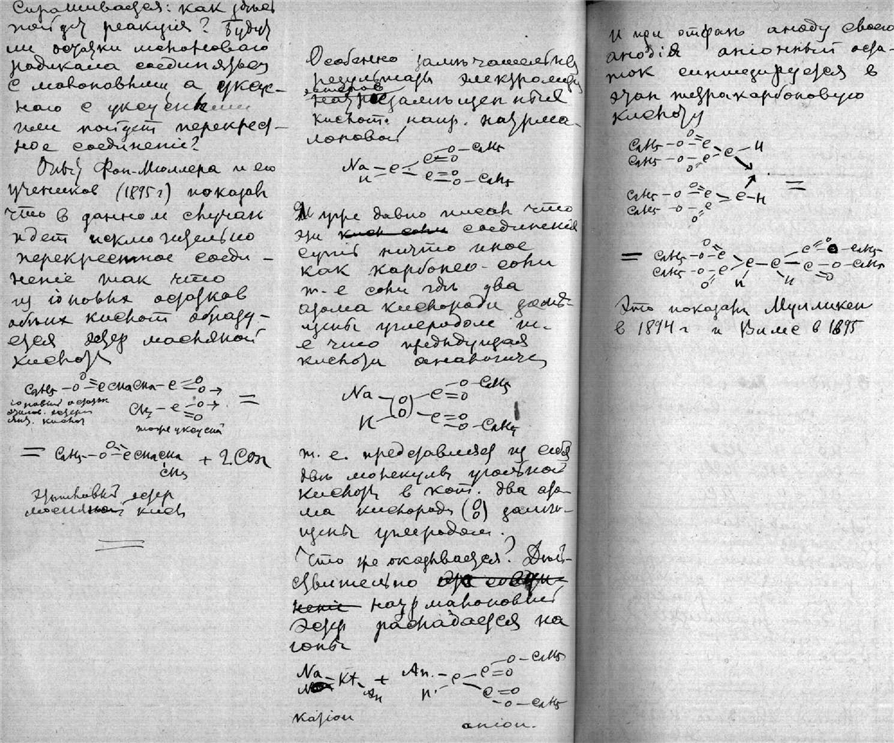 Спрашивается: как здесь
пойдет реакція? Будут
ли остатки малоноваго
радикала соединяться
с малоновыми, а уксус-
наго с уксусными
или пойдет перекрест-
ное соединеніе?
Опыт Фон-Миллера и его
учеников (1895 г) показал
что в данном случаи
идет исключительно
перекрестное соеди-
неніе так что
из іоновых остатков
обоих кислот образу-
ется эфир масляной
кислоты
C2H5-O-C=O CH2CH2-C=O O→
CH3-C=O O→ =
іоновый остаток
кислот
тоже уксусной
= C2H5-O-C=O CH2CH2 CH3 + 2CO2
Этиловый эфир
масляной кисл
Особенно замечательны
результаты электролиза
эфиров
натрзамещенных
кислот напр. натрма-
лоновой
Na H C C=O O-C2H5 C=O O-C2H5
Я уже давно писал что
эти соединенія
суть ничто иное
как карбонео-соли
т-е соли где два
атома кислорода заме-
щены углеродом т-
е что предыдущая
кислота аналогична
Na H (O O) C=O O-C2H5 C=O O-C2H5
т. е. представляет из себя
две молекулы угольной
кислоты в кот. два ато-
ма кислорода (O O) заме-
щены углеродом.
Что же оказывается? Дей-
ствительно
натр малоновый
эфир распадается на
іоны
Na-Kt An + An. H C C=O O-C2H5 C=O O-C2H5
катіон
аніон.
и при отдаче аноду своего
аніонный оста-
ток синтезируется в
этан тетракарбоновую
кислоту
C2H5-O-C=O C2H5-O-C=O C-H
C2H5-O-C=O C2H5-O-C=O C-H =
= C2H5-O-C=O C2H5-O-C=O C H - C H C=O O-C2H5 C=O O-C2H5
Это показали Мулликен
в 1894 г и Вимс в 1895